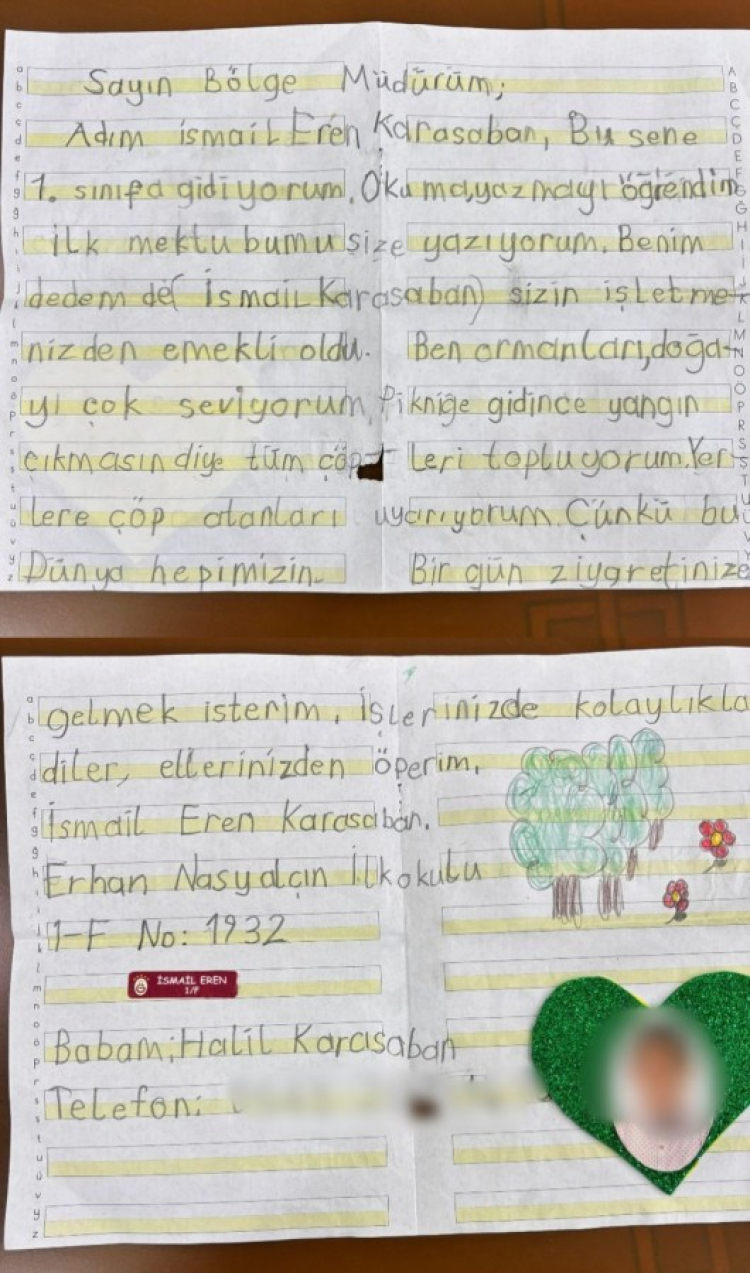 Sayın Bölge Müdürüm;
Adım ismail Eren Karasaban, Bu sene
1. sınıfa gidiyorum. Okuma,yazmayı öğrendim
ilk mektubumu size yazıyorum. Benim
dedem de( İsmail Karasaban) sizin işletme-
nizden emekli oldu. Ben ormanları,doğa-
yı çok seviyorum. Pikniğe gidince yangın
çıkmasın diye tüm çöp-leri topluyorum.Yer-
lere çöp atanları uyarıyorum. Çünkü bu
Dünya hepimizin. Bir gün ziyaretinize
gelmek isterim. İşlerinizde kolaylıkla
diler, ellerinizden öperim.
İsmail Eren Karasaban.
Erhan Nasyalçın İlkokulu
1-F No: 1932
İSMAİL EREN
1/F
Babam;Halil Karasaban
Telefon: